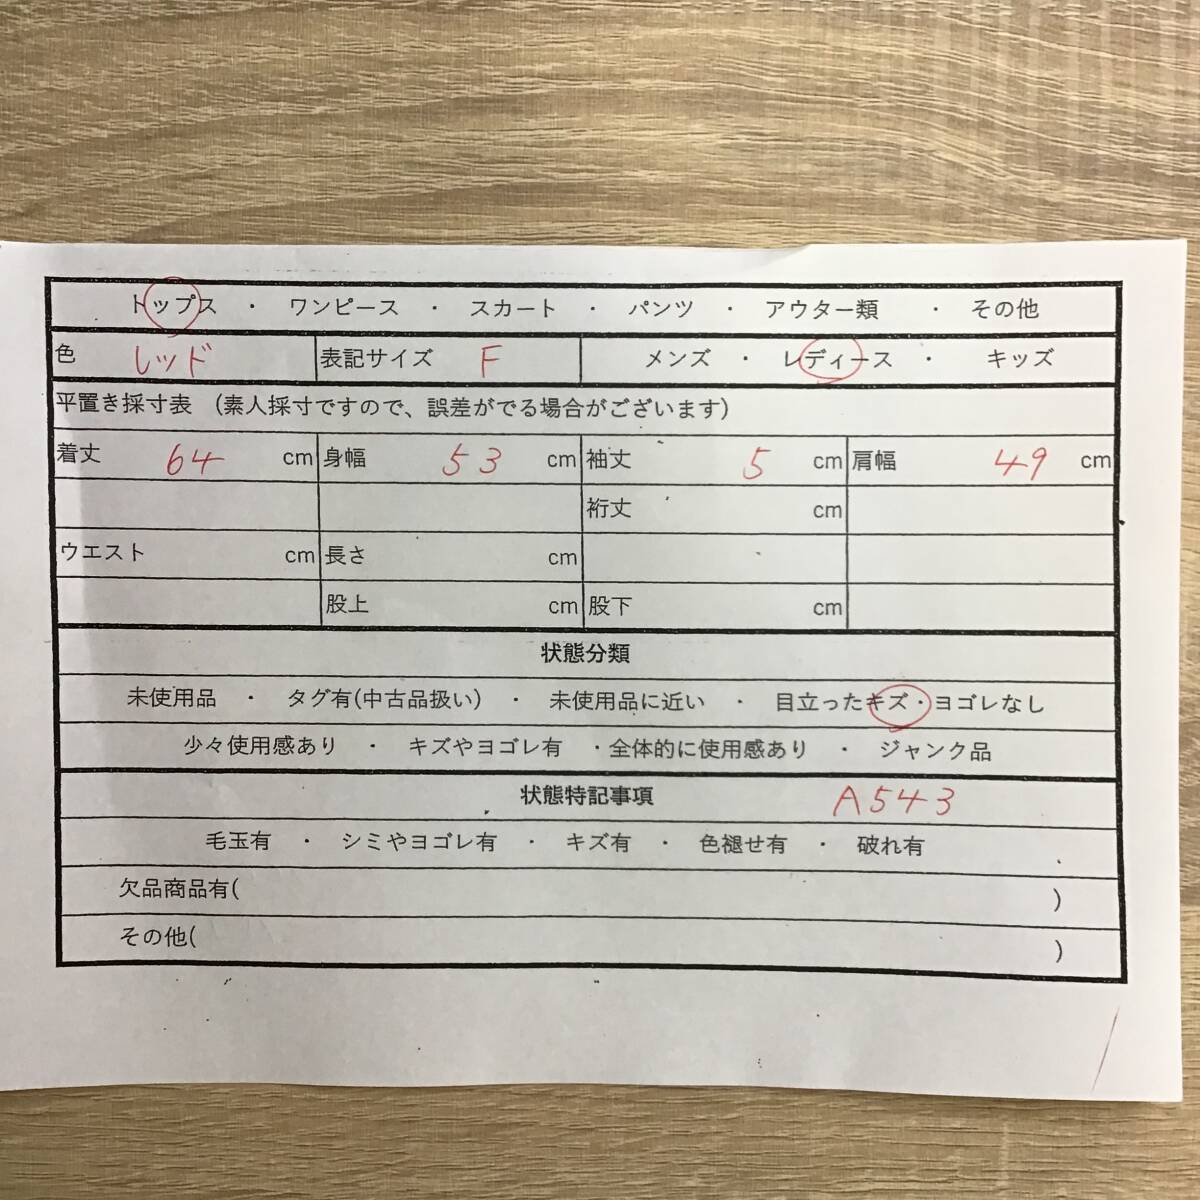 トップス ・ ワンピース ・ スカート ・ パンツ ・ アウター類 ・ その他
色 レッド 表記サイズ F メンズ ・ レディース ・ キッズ
平置き採寸表 (素人採寸ですので、誤差がでる場合がございます)
着丈 64 cm 身幅 53 cm 袖丈 5 cm 肩幅 49 cm
裄丈 cm
ウエスト cm 長さ cm
股上 cm 股下 cm
状態分類
未使用品 ・ タグ有(中古品扱い) ・ 未使用品に近い ・ 目立ったキズ・ヨゴレなし
少々使用感あり ・ キズやヨゴレ有 ・全体的に使用感あり ・ ジャンク品
状態特記事項 A543
毛玉有 ・ シミやヨゴレ有 ・ キズ有 ・ 色褪せ有 ・ 破れ有
欠品商品有( )
その他( )